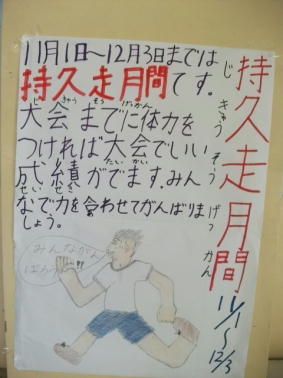 11月1日〜12月3日までは
持久走月間です。
大会までに体力を
つければ大会でいい
成績がでます。みん
なで力を合わせてがんばりま
しょう。
持久走月間
11/1〜12/3
じきゅうそうげっかん
みんながん
ばろう!!